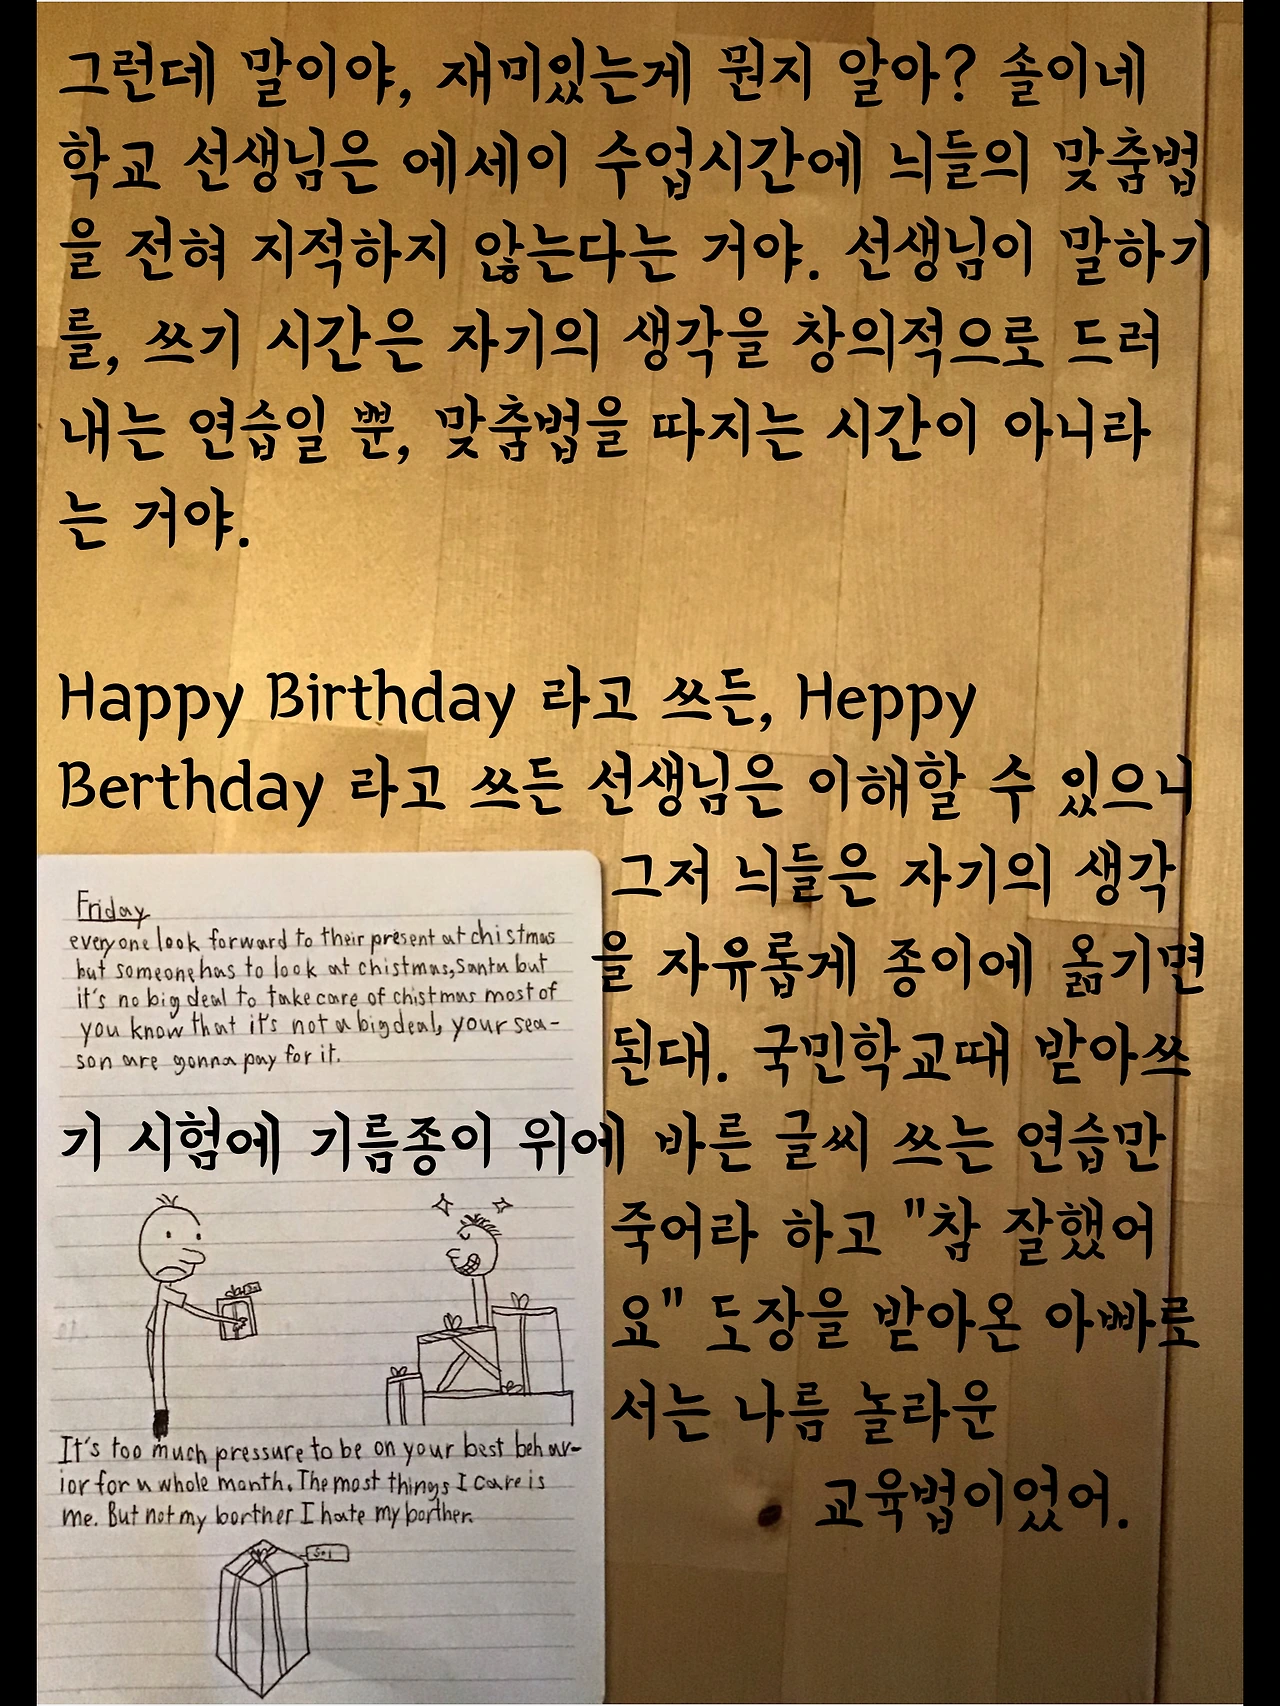 그런데 말이야, 재미있는게 뭔지 알아? 솔이네
학교 선생님은 에세이 수업시간에 늬들의 맞춤법
을 전혀 지적하지 않는다는 거야. 선생님이 말하기
를, 쓰기 시간은 자기의 생각을 창의적으로 드러
내는 연습일 뿐, 맞춤법을 따지는 시간이 아니라
는 거야.
Happy Birthday 라고 쓰든, Heppy
Berthday 라고 쓰든 선생님은 이해할 수 있으니
그저 늬들은 자기의 생각
을 자유롭게 종이에 옮기면
된대. 국민학교때 받아쓰
기 시험에 기름종이 위에 바른 글씨 쓰는 연습만
죽어라 하고 "참 잘했어
요" 도장을 받아온 아빠로
서는 나름 놀라운
교육법이었어.
Friday
everyone look forward to their present at chistmas
but someone has to look at chistmas, Santa but
it's no big deal to take care of chistmas most of
you know that it's not a big deal, your sea-
son are gonna pay for it.
It's too much pressure to be on your best behav-
ior for a whole month. The most things I care is
me. But not my borther I hate my borther.